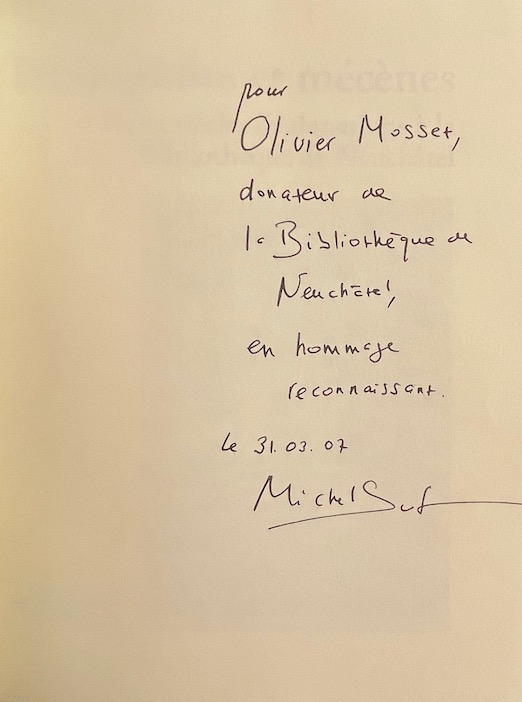 mécènes
pour
Olivier Mosset,
donateur de
la Bibliothèque de
Neuchâtel,
en hommage
reconnaissant.
Le 31.03.07
Michel